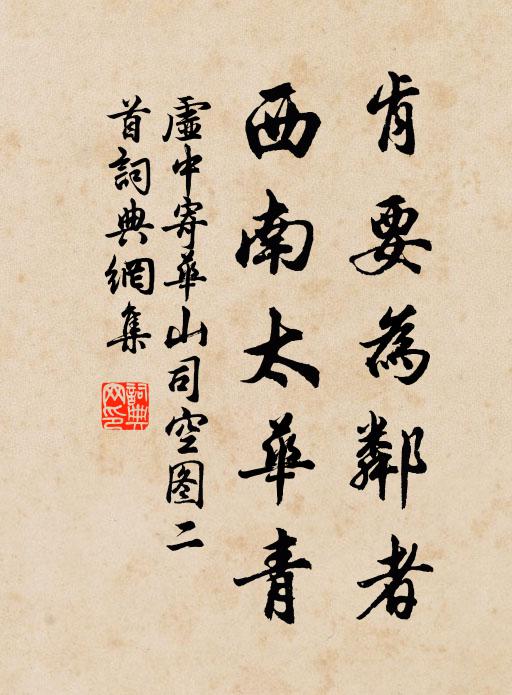 肯要為鄰者
西南太華青
虛中寄華山司空图二
首詞典網集
詞典
网印